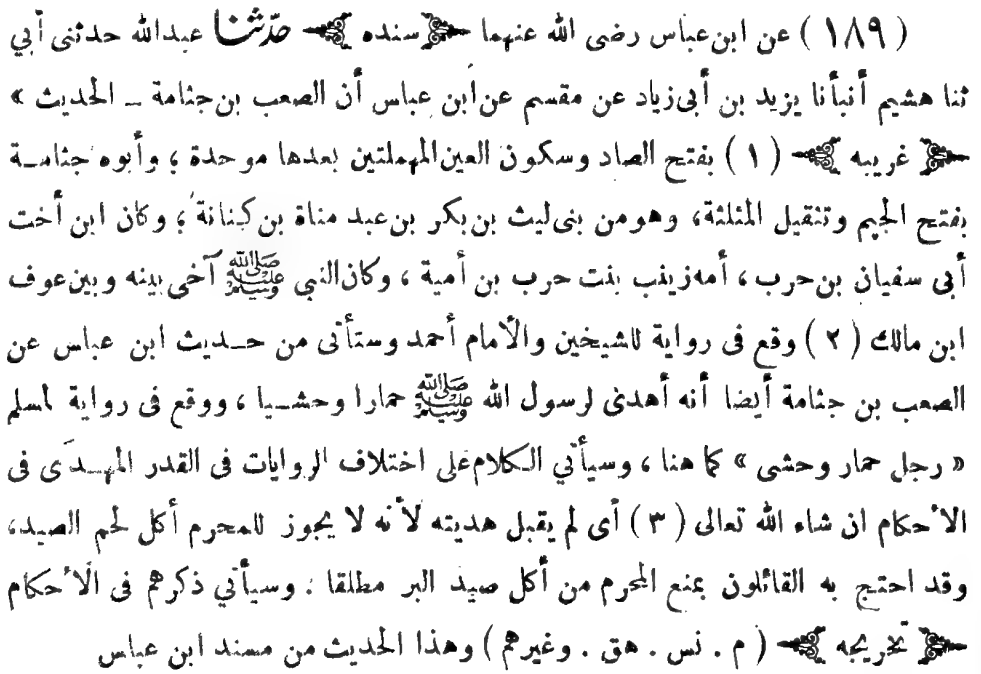 (١٨٩) عن ابن عباس رضى الله عنهما ﴿سنده﴾ حدّثنا عبدالله حدثنى أبي
ثنا هشيم أنبأنا يزيد بن أبى زياد عن مقسم عن ابن عباس أن الصعب بن جثامة ــ الحديث »
﴿غريبه﴾ (١) بفتح الصاد وسكون العين المهملتين بعدها موحدة ؛ وأبوه جثامـة
بفتح الجيم وتثقيل المثلثة، وهو من بنى ليث بن بكر بن عبد مناة بن كنانة ؛ وكان ابن أخت
أبى سفيان بن حرب ، أمه زينب بنت حرب بن أمية ، وكان النبي ﷺ آخى بينه وبين عوف
ابن مالك (٢) وقع فى رواية للشيخين والأمام أحمد وستأتى من حـديث ابن عباس عن
الصعب بن جثامة أيضا أنه أهدى لرسول الله ﷺ حمارا وحشـيا ، ووقع فى رواية لمسلم
« رجل حمار وحشى » كما هنا ، وسيأتي الكلام على اختلاف الروايات فى القدر المهـدَى فى
الأحكام ان شاء الله تعالى (٣) أى لم يقبل هديته لأنه لا يجوز للمحرم أكل لحم الصيد،
وقد احتج به القائلون بمنع المحرم من أكل صيد البر مطلقا : وسيأتي ذكرهم فى الأحكام
﴿تخريجه﴾ (م . نس . هق . وغيرهم) وهذا الحديث من مسند ابن عباس